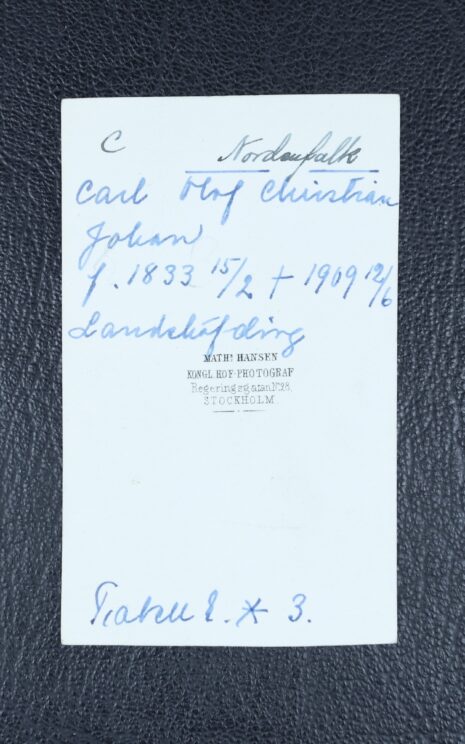 C
Nordenfalk
Carl Olof Christian
Johan
f. 1833 15/2 † 1909 12/6
Landshöfding
MATHS HANSEN
KONGL. HOF-PHOTOGRAF
Regeringsgatan No 28.
STOCKHOLM
3.